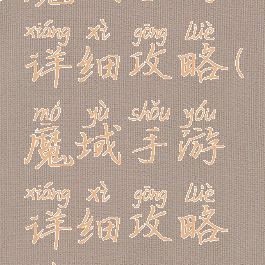 xiáng xì gōng lüè
详细攻略(
mó yù shǒu yóu
魔域手游
xiáng xì gōng lüè
详细攻略